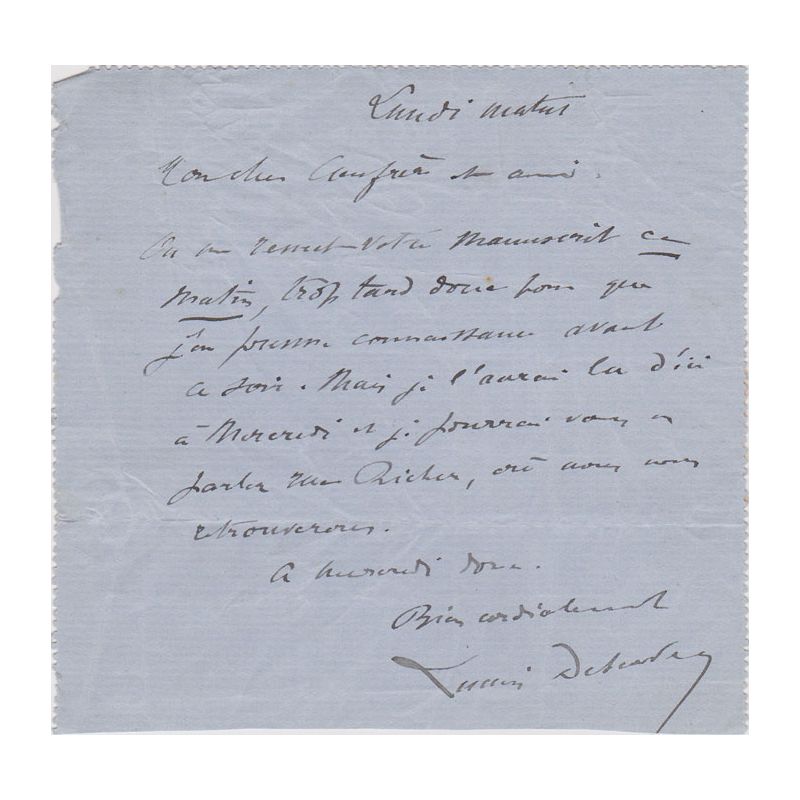 Lundi matin
Mon cher Confrère et ami,
On me remet votre manuscrit ce
matin, trop tard donc pour que
j'en prenne connaissance avant
ce soir. Mais je l'aurai lu d'ici
à Mercredi et je pourrai vous en
parler rue Richer, où nous nous
retrouverons.
A mercredi donc.
Bien cordialement
Lucien